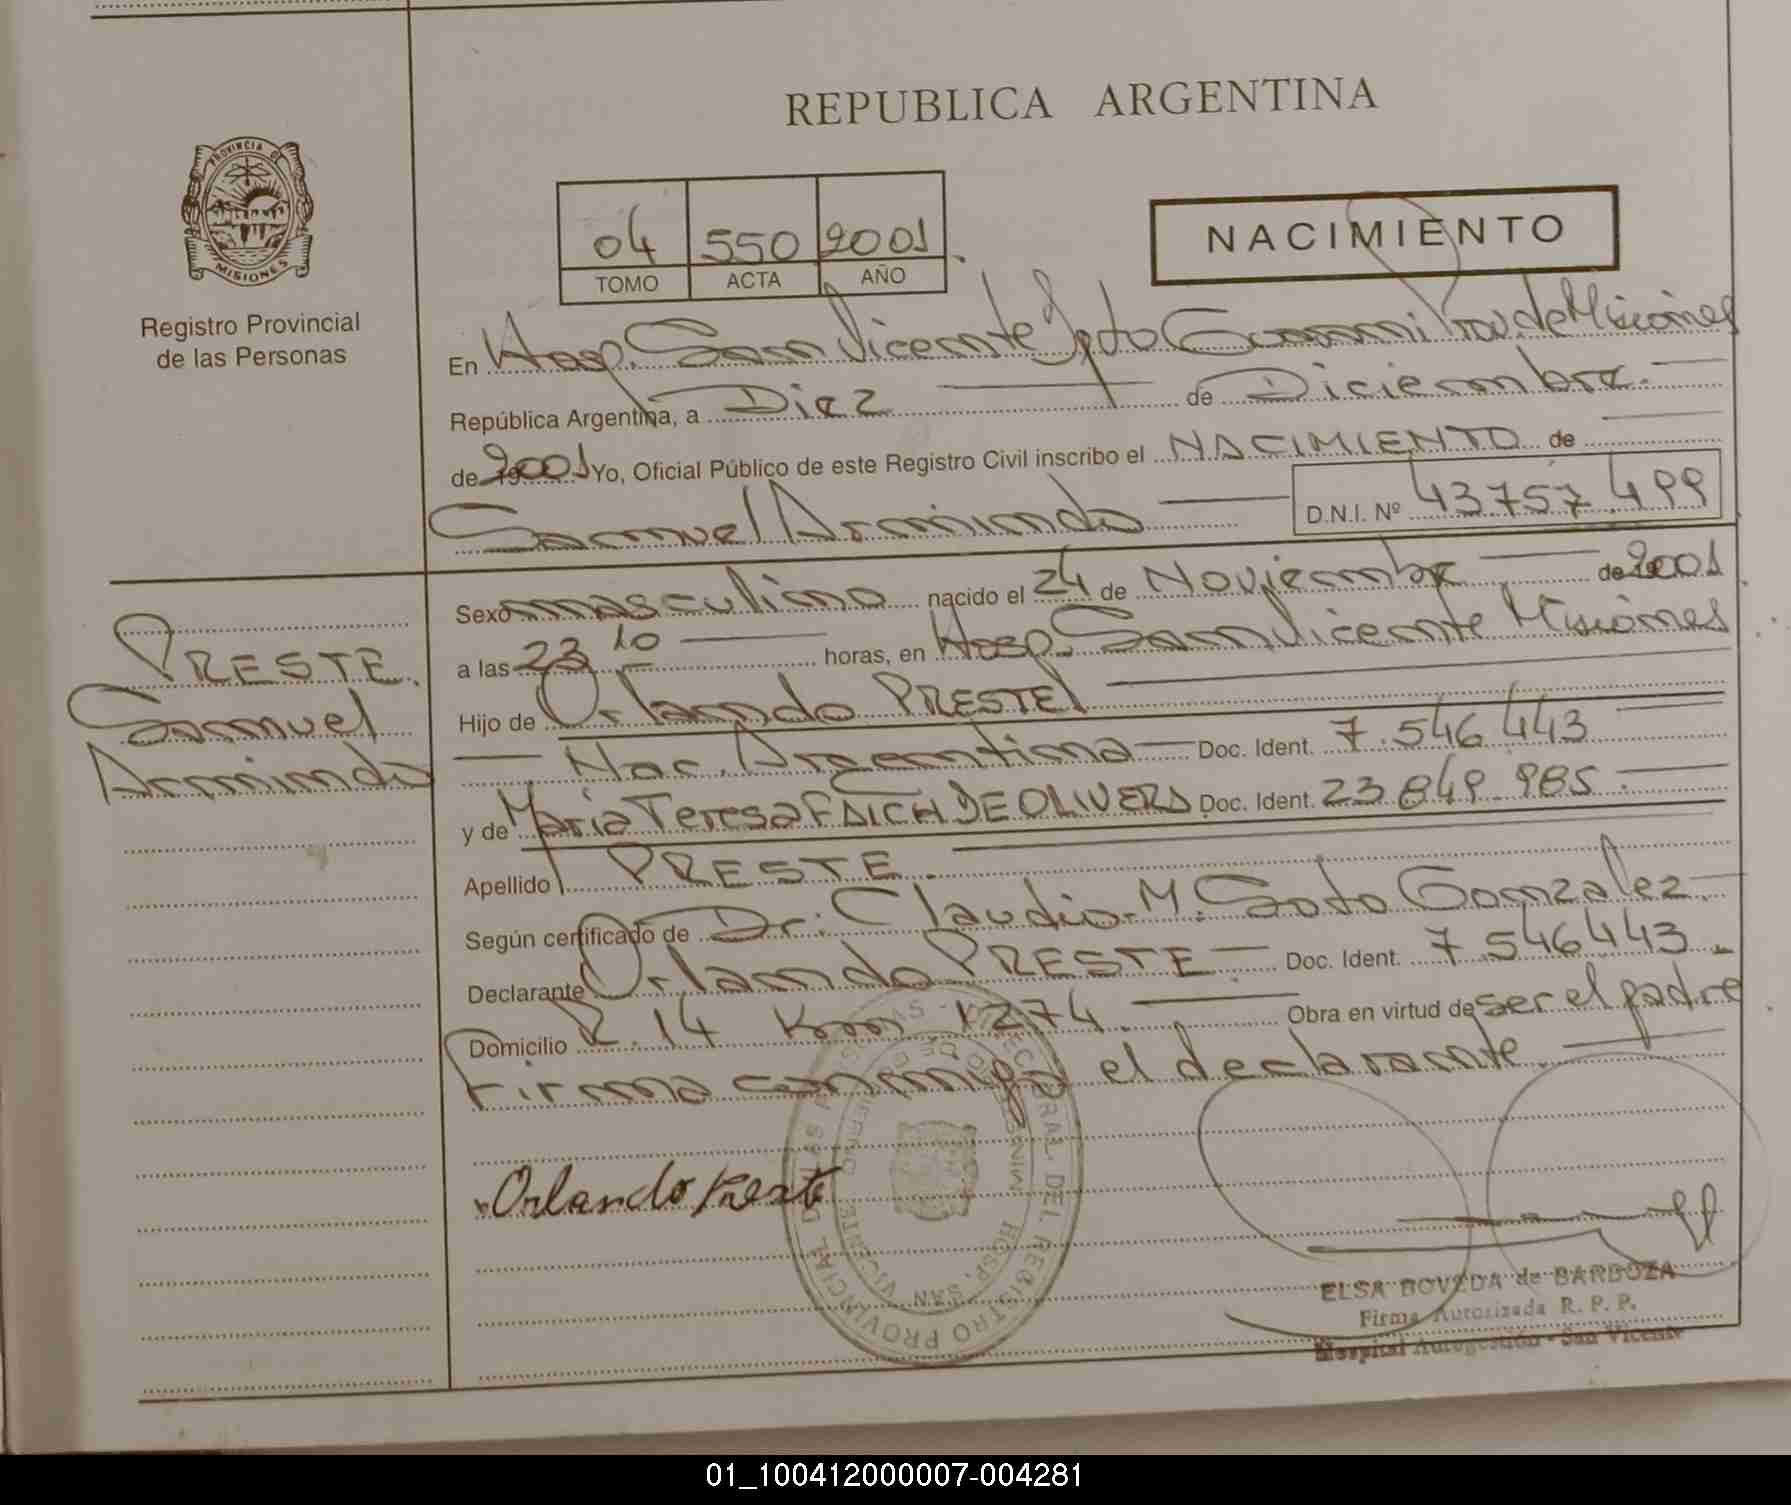 REPUBLICA ARGENTINA
PROVINCIA DE
MISIONES
Registro Provincial
de las Personas
04 550 2001
TOMO ACTA AÑO
NACIMIENTO
En Hosp. San Vicente Dpto Guarani Prov. de Misiones
República Argentina, a Diez de Diciembre
de 2001 Yo, Oficial Público de este Registro Civil inscribo el NACIMIENTO de
Samuel Armindo D.N.I. Nº 43757.499
PRESTE
Samuel
Armindo
Sexo masculino nacido el 24 de Noviembre de 2001
a las 23 10 horas, en Hosp. San Vicente Misiones
Hijo de Orlando PRESTE
Nac. Argentina Doc. Ident. 7.546 443
y de Maria Teresa FAICH DE OLIVERA Doc. Ident. 23 849.985
Apellido PRESTE
Según certificado de Dr: Claudio M. Soto Gonzalez
Declarante Orlando PRESTE Doc. Ident. 7 546443
Domicilio R. 14 Km 1274 Obra en virtud de ser el padre
Firma conmigo el declarante
Orlando Preste
REGISTRO PROVINCIAL DE LAS
HOSP. SAN VICENTE
ELSA BOVEDA de BARBOZA
Firma Autorizada R. P. P.
Hospital Autogestión - San Vicente
01_100412000007-004281